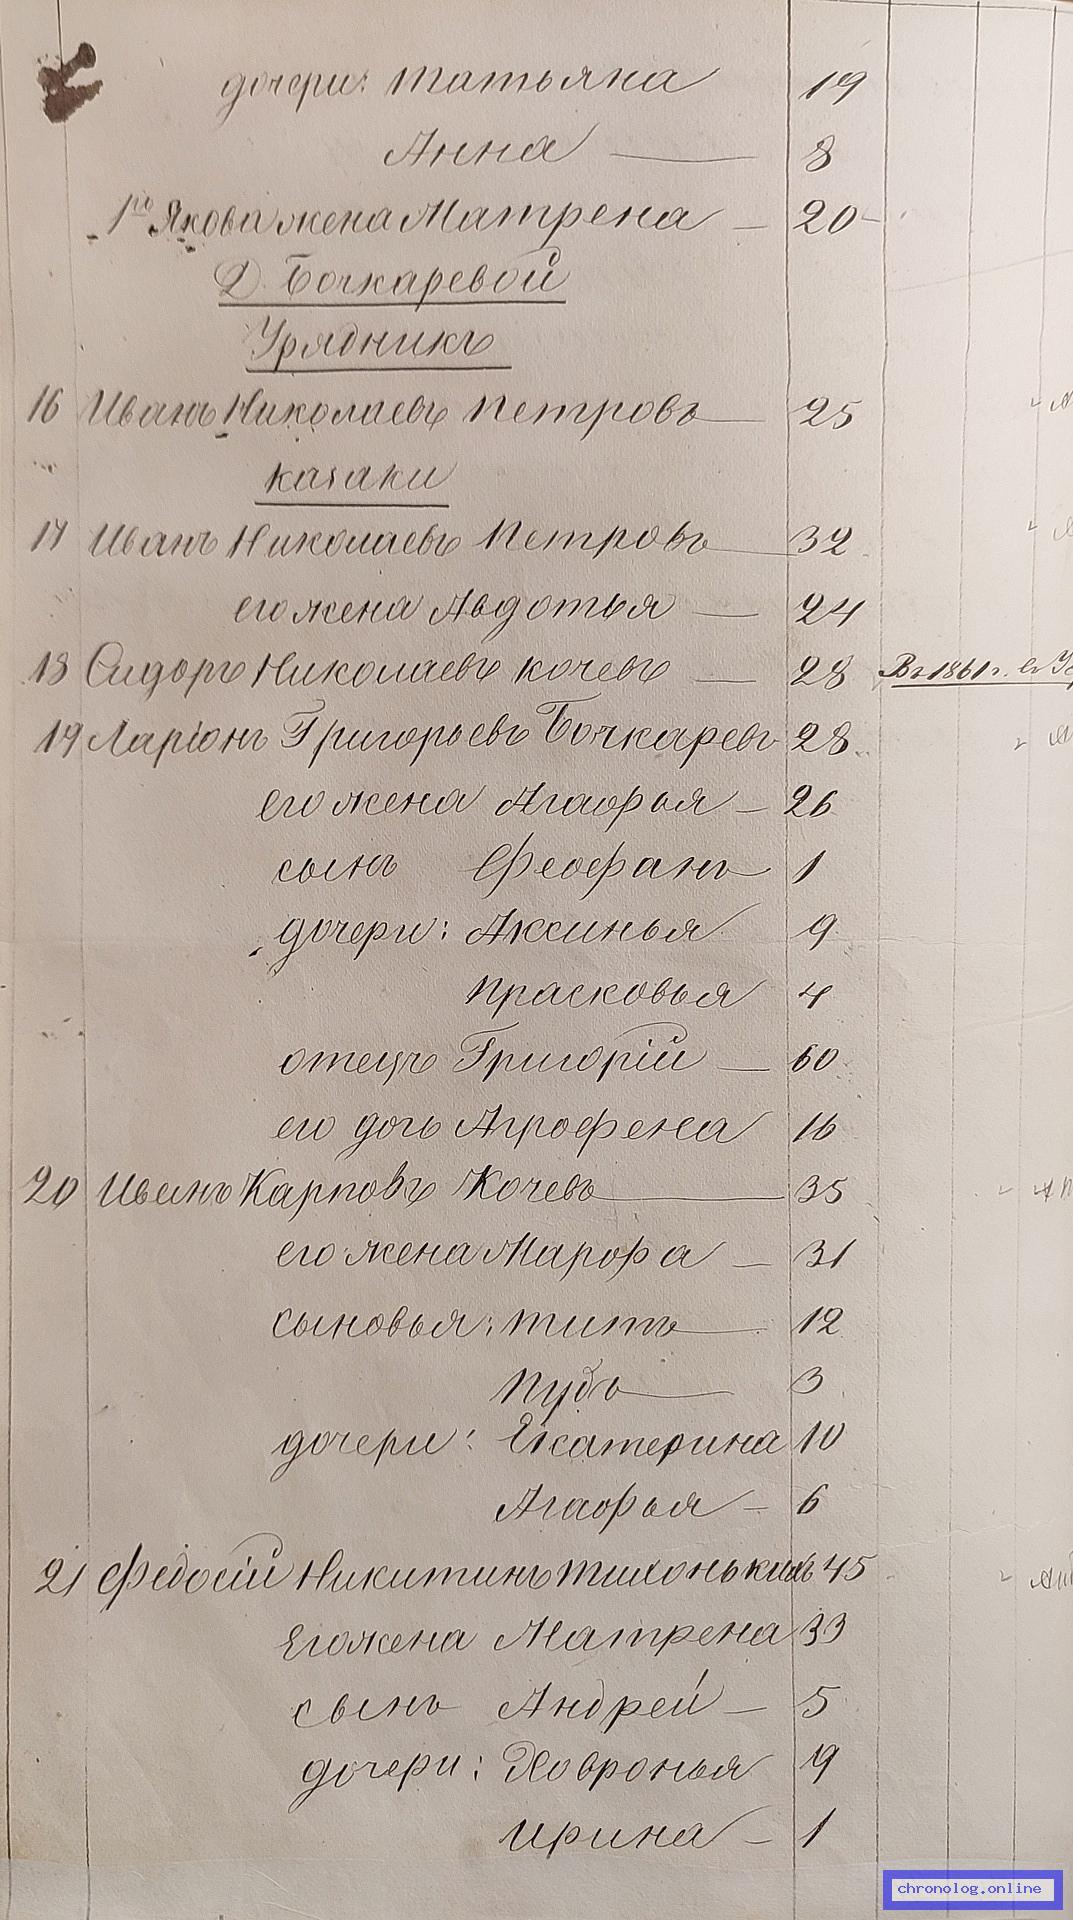 дочери: Татьяна 19
Анна — 8
1го Якова жена Матрена — 20
Д. Бочкаревой
Урядникъ
16 Иванъ Николаевъ Петровъ — 25
казаки
17 Иванъ Николаевъ Петровъ — 32
его жена Авдотья — 24
18 Сидоръ Николаевъ Кочевъ — 28 Въ 1861 г.
19 Ларіонъ Григорьевъ Бочкаревъ 28
его жена Агафья — 26
сынъ Феофанъ 1
дочери: Аксинья 9
Прасковья 4
отецъ Григорій — 60
его дочь Агрофена 16
20 Иванъ Карповъ Кочевъ — 35
его жена Марфа — 31
сыновья: Титъ — 12
Пудъ — 3
дочери: Екатерина 10
Агафья — 6
21 Федосій Никитинъ Тихонькихъ 45
Его жена Матрена 33
сынъ Андрей — 5
дочери: Ховронья 19
Ирина — 1
chronolog.online